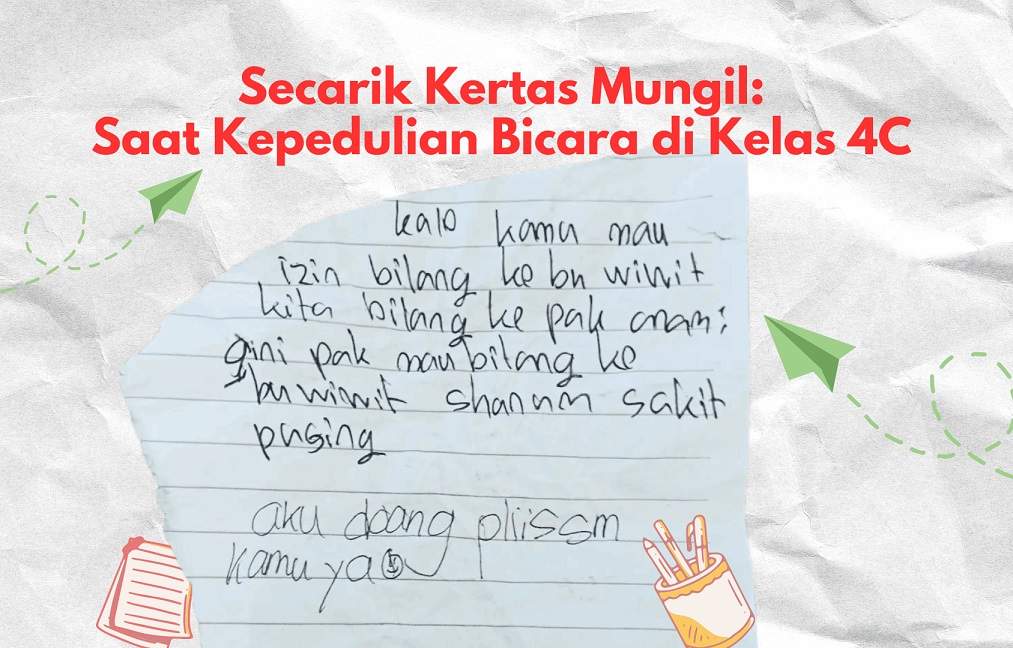 Secarik Kertas Mungil:
Saat Kepedulian Bicara di Kelas 4C
kalo kamu mau
izin bilang ke bu wiwit
kita bilang ke pak anam:
gini pak mau bilang ke
bu wiwit shanum sakit
pusing
aku doang pliissm
kamu ya